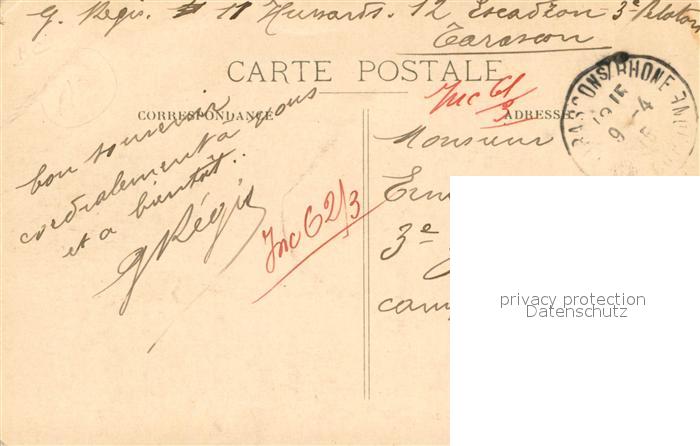 G. Régis. 11 Hussards. 12 Escadron 3e Peloton
Tarascon
CARTE POSTALE
CORRESPONDANCE
ADRESSE
bon souvenir
cordialement a vous
et a bientôt.
G Régis
Inc 61/3
Inc 62/3
Monsieur
3e
TARASCON S/RHONE
9 -4
privacy protection
Datenschutz